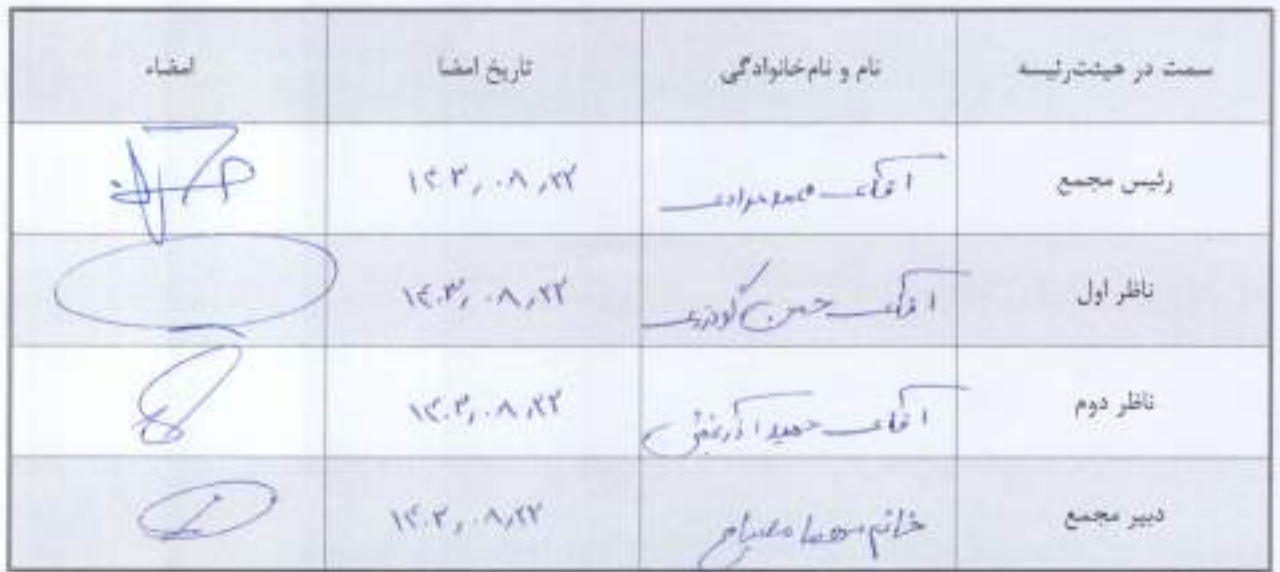 سمت در هیئت‌رئیسه نام و نام‌خانوادگی تاریخ امضا امضاء
رئیس مجمع آقای محمد جوادی ۱۴۰۳,۰۸,۲۳
ناظر اول آقای حسن گودرزی ۱۴۰۳,۰۸,۲۳
ناظر دوم آقای حمید ۱۴۰۳,۰۸,۲۳
دبیر مجمع خانم مصباح ۱۴۰۳,۰۸,۲۳